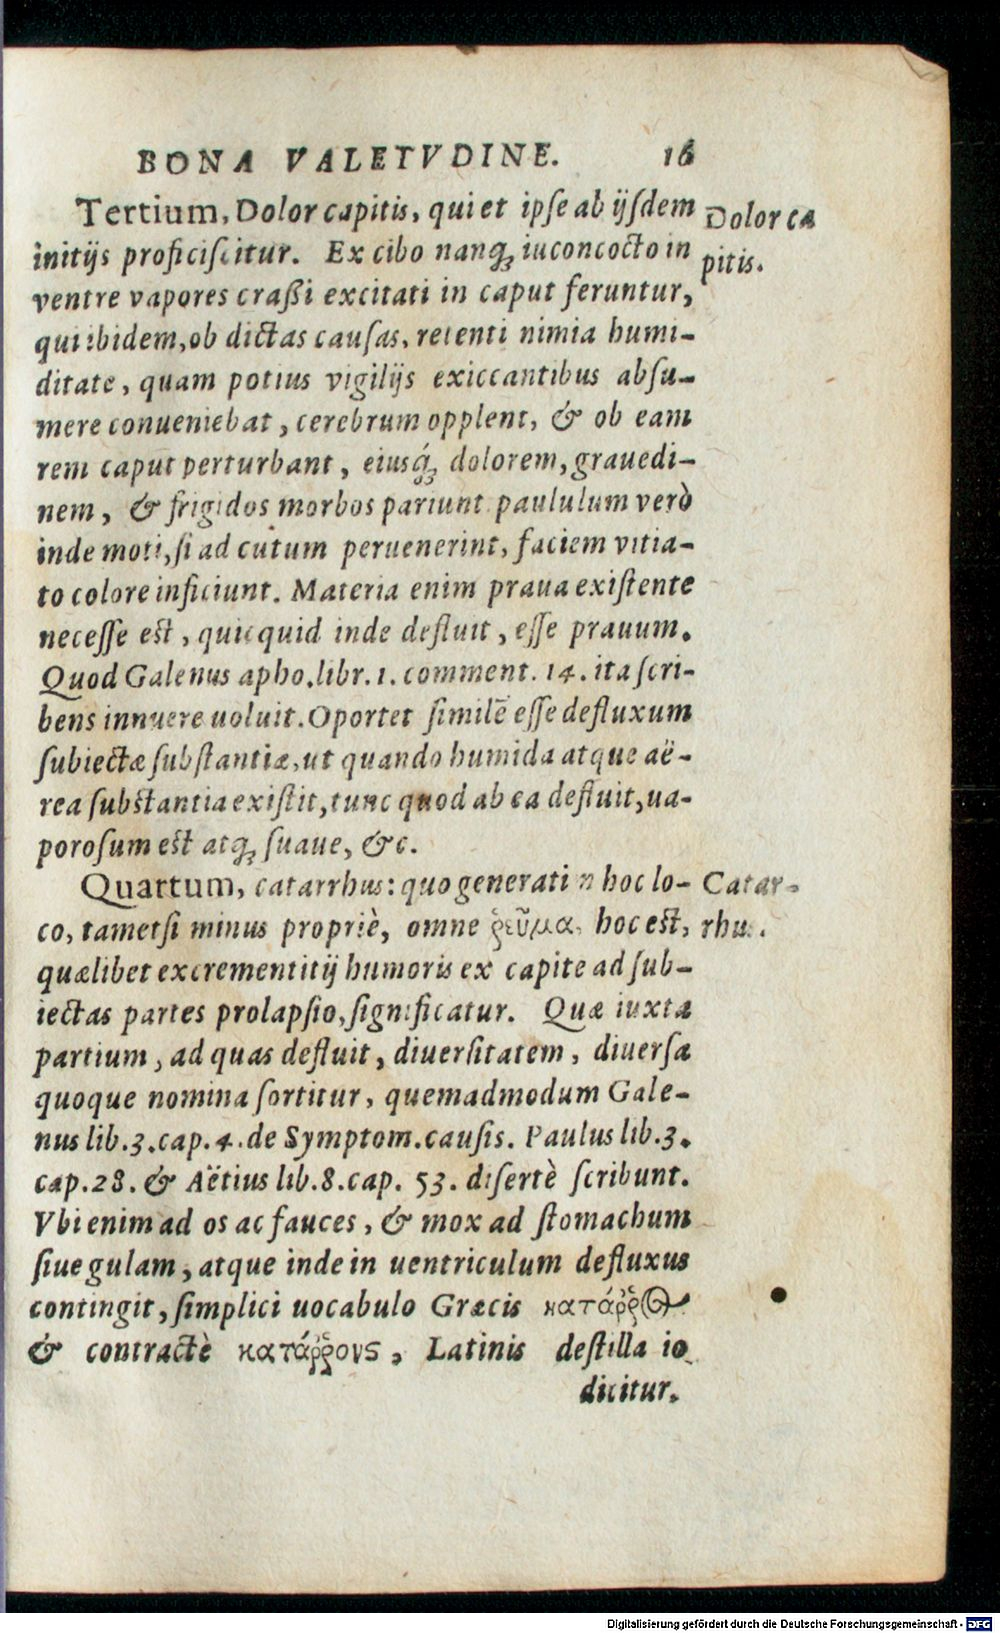 BONA VALETVDINE. 16
Tertium, Dolor capitis, qui et ipſe ab ijſdem
Dolor ca
initijs proficiſcitur. Ex cibo nanq́; inconcocto in
pitis.
ventre vapores craßi excitati in caput feruntur,
qui ibidem, ob dictas cauſas, retenti nimia humi-
ditate, quam potius vigilijs exiccantibus abſu-
mere conueniebat, cerebrum opplent, & ob eam
rem caput perturbant, eiusq́; dolorem, grauedi-
nem, & frigidos morbos pariunt paululum verò
inde moti, ſi ad cutum peruenerint, faciem vitia-
to colore inficiunt. Materia enim praua exiſtente
neceſſe est, quicquid inde defluit, eſſe prauum.
Quod Galenus apho. libr. 1. comment. 14. ita ſcri-
bens innuere uoluit. Oportet ſimilē eſſe defluxum
ſubiectæ ſubſtantiæ, ut quando humida atque aë-
rea ſubstantia exiſtit, tunc quod ab ea defluit, ua-
poroſum est atq; ſuaue, &c.
Quartum, catarrhus: quo generati in hoc lo-
Catar-
co, tametſi minus propriè, omne ῥεῦμα, hoc est,
rhus.
quælibet excrementitij humoris ex capite ad ſub-
iectas partes prolapſio, ſignificatur. Quæ iuxta
partium, ad quas defluit, diuerſitatem, diuerſa
quoque nomina ſortitur, quemadmodum Gale-
nus lib. 3. cap. 4. de Symptom. cauſis. Paulus lib. 3.
cap. 28. & Aëtius lib. 8. cap. 53. diſertè ſcribunt.
Vbi enim ad os ac fauces, & mox ad ſtomachum
ſiue gulam, atque inde in uentriculum defluxus
contingit, ſimplici uocabulo Græcis κατάῤῥος
& contractè κατάῤῥους, Latinis deſtilla io
dicitur.
Digitalisierung gefördert durch die Deutsche Forschungsgemeinschaft - DFG